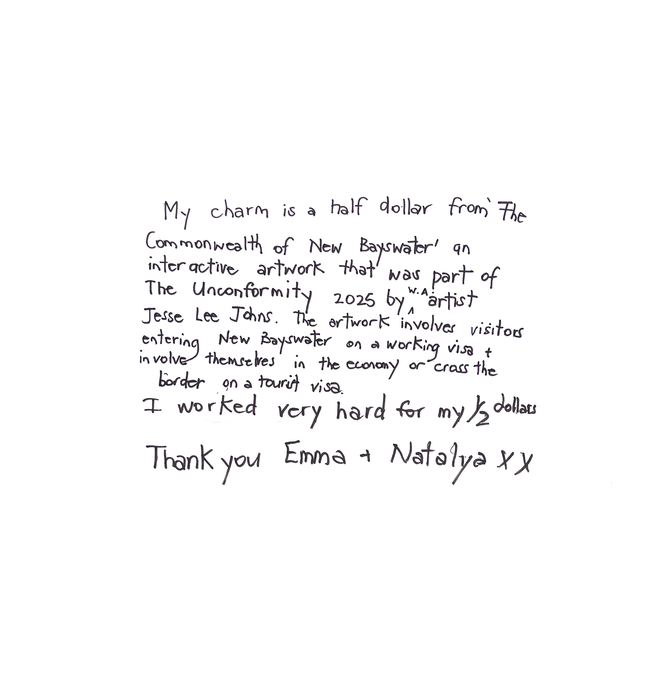 My charm is a half dollar from 'The
Commonwealth of New Bayswater' an
interactive artwork that was part of
The Unconformity 2025 by W.A artist
Jesse Lee Johns. The artwork involves visitors
entering New Bayswater on a working visa +
involve themselves in the economy or cross the
border on a tourist visa.
I worked very hard for my 1/2 dollars
Thank you Emma + Natalya xx